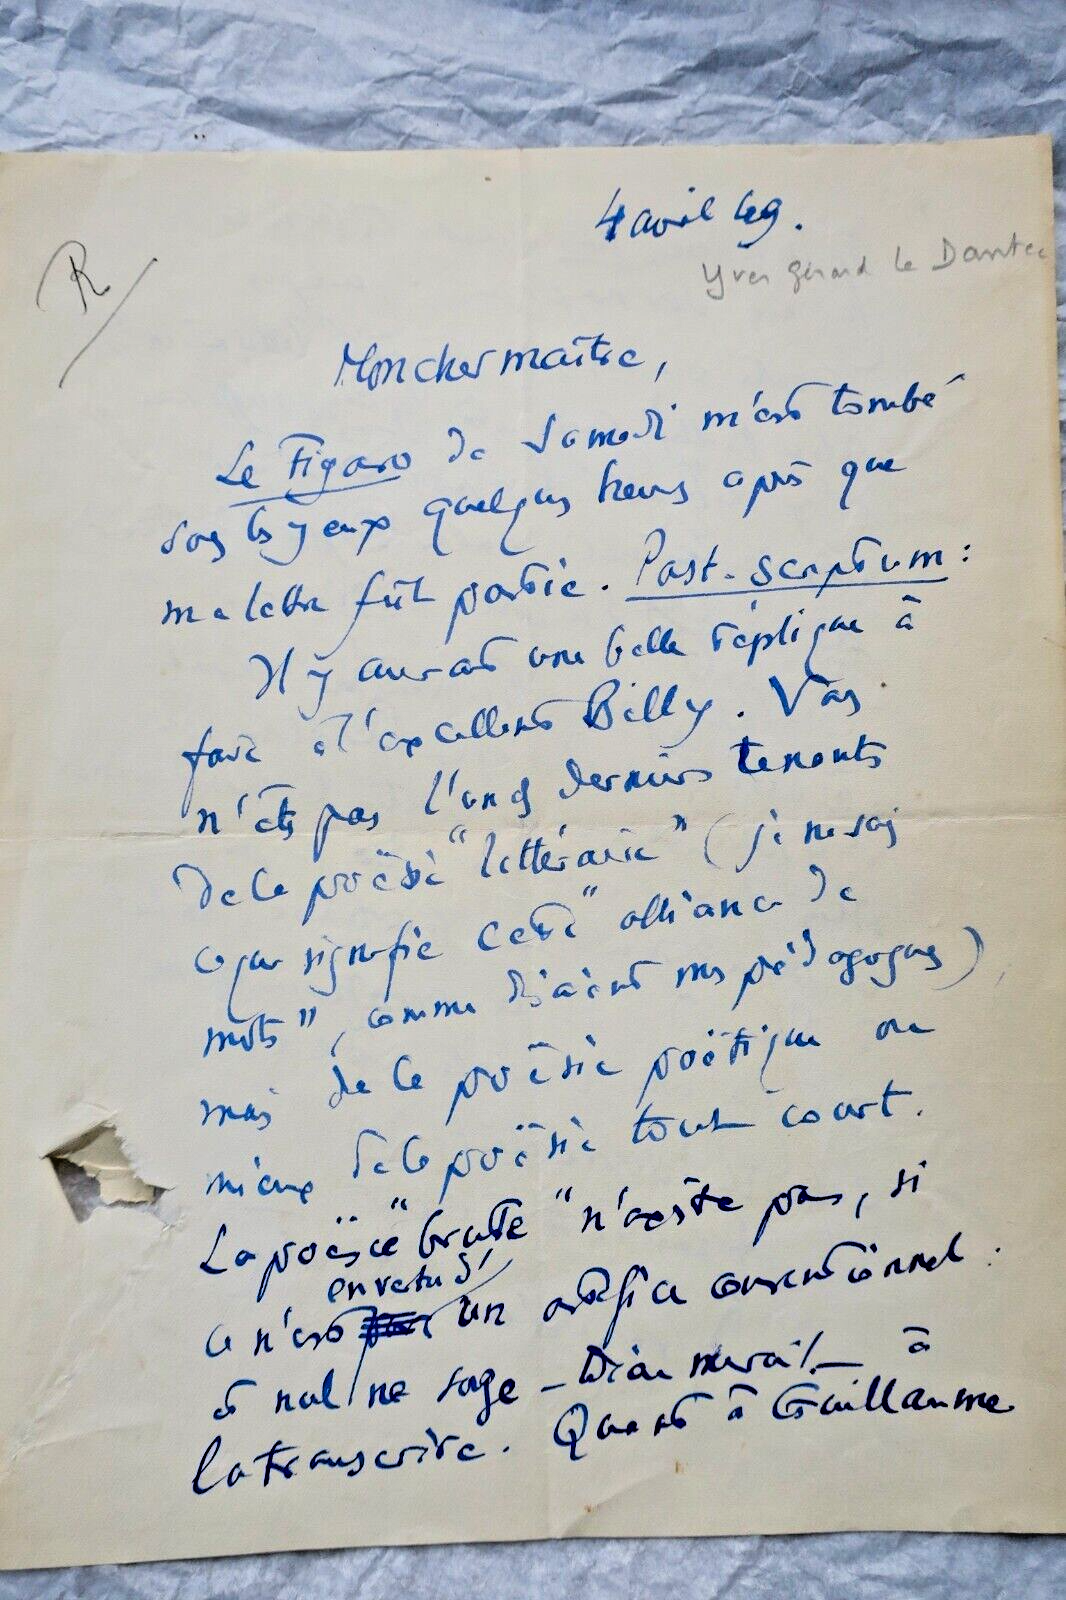 4 avril 49.
Yves Gérard le Dantec
R
Mon cher maître,
Le Figaro de Samedi m'est tombé
sous les yeux quelques heures après que
ma lettre fût partie. Post-scriptum :
Il y aurait une belle réplique à
faire à l'excellent Billy. Vous
n'êtes pas l'un des derniers tenants
de la poësie "littéraire" (je ne sais
ce que signifie cette "alliance de
mots", comme disaient mes pédagogues),
mais de la poësie poëtique ou
mieux de la poësie tout court.
La poësie "brute" n'existe pas, si
en vertu d'
ce n'est un artifice conventionnel.
et nul ne songe – Dieu merci! – à
la transcrire. Quant à Guillaume